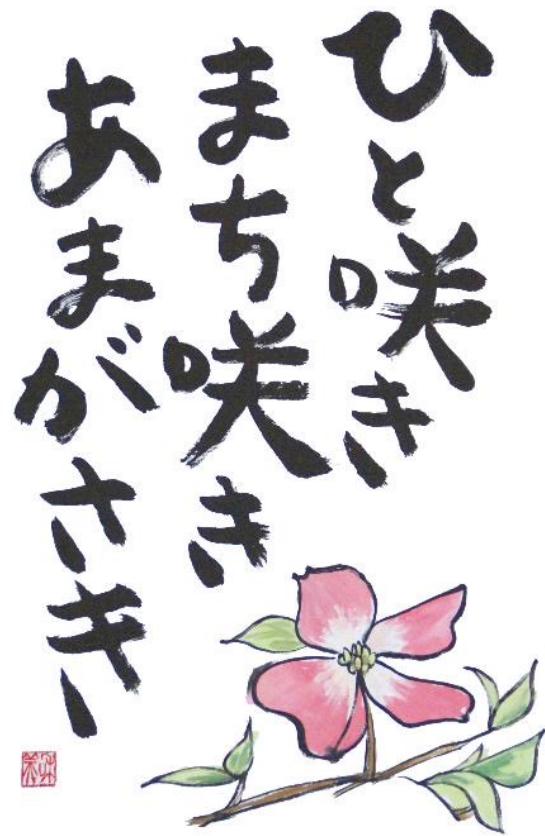 ひと咲き
まち咲き
あまがさき